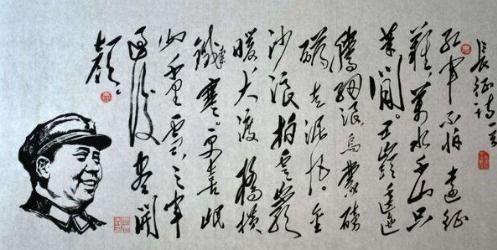 長征詩一首
紅軍不怕遠征
難萬水千山只
等閒。五嶺逶迤
騰細浪烏蒙磅
礴走泥丸。金
沙浪拍雲崖
暖大渡橋橫
鐵索寒。更喜岷
山千里雪三軍
過後盡開
顏。